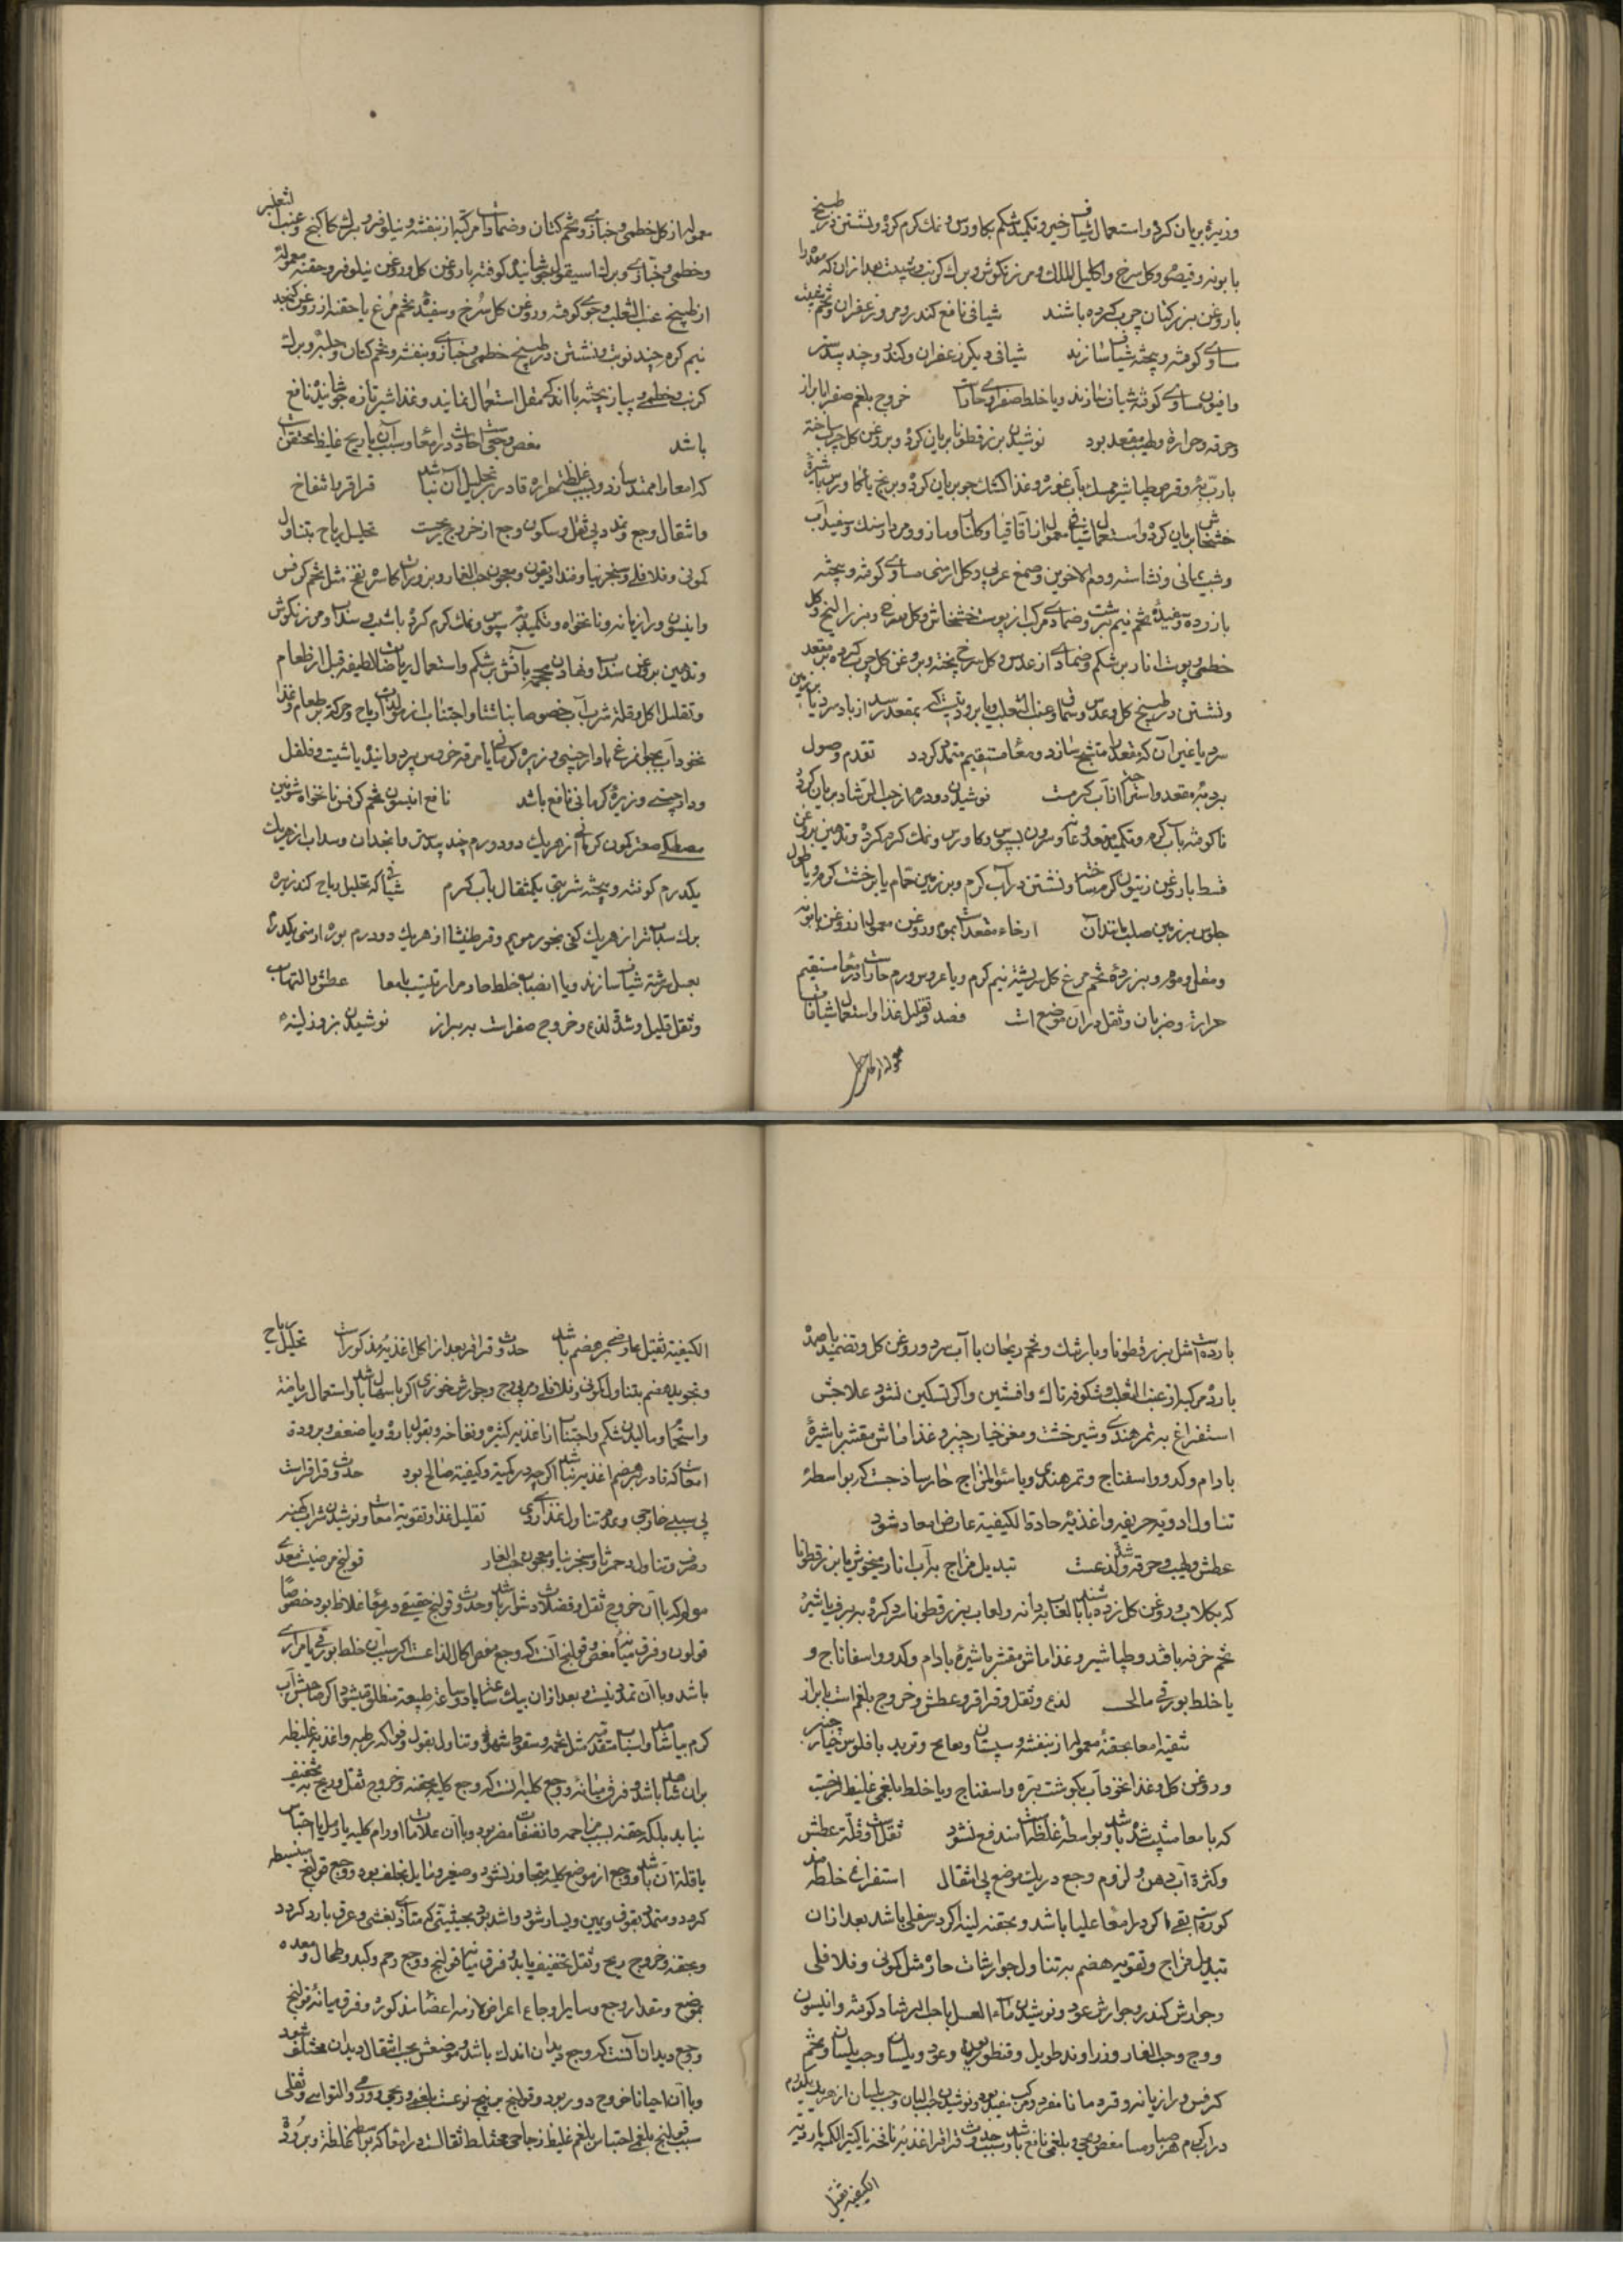 وزیره بریان کرده و استعمال شیاف خیر و تکمید شکم بکاورس و نمک کرم کرده و نشستن در طبیخ
بابونه و قیصوم و کل سرخ و اکلیل الملک و مرزنکوش و برک کرنب و شبت بعد ازان که معده را
بار وغن بزر کتان چرب کرده باشند شیافی نافع کندر و مر و زعفران و
ساوی کوفته و پخته شیاف سازند شیافی دیکر زعفران و کندر و جند بیدستر
وافیون مساوی کوفته شیاف سازند و یا خلط صفراوی حادست خروج بلغم صفرا با براز
وحرقه و حرارة و لهیب مقعد بود نوشیدن بزر قطونا بریان کرده و بروغن کل چرب ساخته
بارب به و قرص طباشیر ممسک بآب غوره و غذا کشک جو بریان کرده و برنج یا کاورس با شیره
خشخاش بریان کرده و استعمال شیافی معمول از اقاقیا و کلنار و مازو و مردارسنک و سفیداب
وشب یمانی و نشاسته و دم الاخوین و صمغ عربی و کل ارمنی مساوی کوفته و پخته
بازرده و سفیده تخم نیم برشت و ضمادی مرکب از پوست خشخاش و کل سرخ و بزر البنج و کل
خطمی و پوست انار بر شکم و ضمادی از عدس و کل سرخ پخته و بروغن کل چرب کرده بر مقعد
ونشستن در طبیخ کل و عدس و سماق و عنب الثعلب و یا برودتیست که بمقعد رسد از باد سرد یا بر زمین
سرد یا غیر آن که مقعد را متشنج سازد و معاء مستقیم متمدد کردد تقدم وصول
برد به مقعد و استراحت از آب کرمست نوشیدن دو درم از حب الرشاد بریان کرده
ناکوفته بآب کرم و تکمید مقعد و عانه و سرون بسبوس و کاورس و نمک کرم کرده و تدهین بروغن
قسط یا روغن زیتون کرم ساخته و نشستن در آب کرم و بر زمین حمام یا بر خشت کرم و یا طول
جلوس بر زمین صلب باشد آن ارخاء مقعدست بموم روغن معمول از روغن بابونه
ومقل و موم و بزرده تخم مرغ کل سرشته نیم کرم و یا عروض ورم حارست در معاء مستقیم
حرارة و ضربان و ثقل دران موضع است فصد و تقلیل غذا و استعمال شیافات
معموله از کل خطمی
معموله از کل خطمی و خبازی و تخم کتان و ضمادات مرکبه از بنفشه و نیلوفر و برک کاکنج و عنب الثعلب
وخطمی و خبازی و برک اسپیقول جوشانیده کوفته با روغن کل و روغن نیلوفر و حقنه معموله
از طبیخ عنب الثعلب و جوی کوفته و روغن کل سرخ و سفیده تخم مرغ یا حقنه از روغن کنجد
نیم کرم چند نوبت و نشستن در طبیخ خطمی و خبازی و بنفشه و تخم کتان و حلبه و برک
کرنب و خطمی و پیاز پخته با اندک مقل استعمال نمایند و غذا شیر تازه جوشانیده نافع
باشد مغص وجعی است حادث در امعا و سبب آن یا ریح غلیظ محتقن است
که امعا را ممتد سازد و بسبب غلظت حراره قادر بر تحلیل آن نباشد قراقر با نفاخ
وانتقال وجع و تمدد بی ثقل و سکون وجع از خروج ریحست تحلیل ریاح بتناول
کمونی و فلافلی و سنجرنیا و فنداذیقون و معجون حب الغار و بزورات کاسره نفخ مثل تخم کرفس
وانیسون و رازیانه و نانخواه و تکمید بسبوس و نمک کرم کرده باشند و سداب و مرزنکوش
وتدهین بروغن سداب و نهادن محجمه بآتش بر شکم و استعمال ریاضات لطیفه قبل از طعام
وتقلیل اکل و قلة شرب آب خصوصا بناشتا و اجتناب از مولدات ریاح و حرکة بر طعام و غذا
نخوداب بجوامرغ با دارچینی و زیره کرمانی یا مرقه خروس پیر و مانند یا شبت و فلفل
ودارچینی و زیره کرمانی نافع باشد نافع انیسون تخم کرفس نانخواه شونیز
مصطکی صعتر کمون کرمانی از هریک دو درم جند بیدستر و انجدان و سداب از هریک
یکدرم کوفته و پخته شربتی یکمثقال بآب کرم شیافی که تحلیل ریاح کند زیره
برک سداب تر از هریک کفی بخور مریم و قرطینثا از هریک دو درم بوره ارمنی یکدرم
بعسل سرشته شیاف سازند و یا انصباب خلط حاد مراریست بامعا عطش و التهاب
وثقل قلیل و شدة لذع و خروج صفرا است به براز نوشیدن بزور لینه
بارده است مثل بزر قطونا و بارتنک و تخم ریحان با آب سرد و روغن کل و تضمید باضمده
بارده مرکبه از عنب الثعلب و شکوفه تاک و افسنتین و اکر تسکین نشود علاجش
استفراغ به تمر هندی و شیرخشت و مغز خیارچنبر و غذا ماش مقشر با شیره
بادام و کدو و اسفناج و تمر هندی و یا سوء المزاج حار ساذجست که بواسطه
تناول ادویه حریفه و اغذیه حادة الکیفیة عارض امعا شود
عطش و لهیب و حرقه و لذعست تبدیل مزاج به آب انار میخوش یا بزر قطونا
که بکلاب و روغن کل زده باشند یا لعاب به دانه و لعاب بزر قطونا سرد کرده به برف یا شیره
تخم خرفه با قند و طباشیر و غذا ماش مقشر با شیره بادام و کدو و اسفاناج و
یا خلط بورقی مالح لذع و ثقل و قراقر و عطش و خروج بلغم است با براز
تنقیه امعا بحقنه معموله از بنفشه و سپستان و تربد با فلوس خیارچنبر
وروغن کل و غذا نخوداب بکوشت بره و اسفناج و یا خلط بلغمی غلیظ لزجست
که بامعا متشبث شده باشد و بواسطه غلظت مندفع نشود ثقلست و قلة عطش
وکثرة آب دهن و لزوم وجع در یک موضع بی انتقال استفراغ خلطست
بقی اکر در امعاء علیا باشد و بحقنه لینه اکر در سفلی باشد بعد ازان
تبدیل مزاج و تقویه هضم به تناول جوارشات حاره مثل کمونی و فلافلی
وجوارش کندر و جوارش عود و نوشیدن ماء العسل یا حب الرشاد کوفته و انیسون
ووج و حب الغار و زراوند طویل و قنطوریون و عود بلسان و حب بلسان و تخم
کرفس و رازیانه و قردمانا مفرد و مرکب مفید بود و نوشیدن حب البان و حب بلسان از هریک یکدرم
در آب کرم مغص ریحی و بلغمی نافع باشد و سبب حدوث قراقر اغذیه نفاخه یا کثیر الکمیه یا ردیه
الکیفیة ثقیل
الکیفیة ثقیل عارض بر هضم باشد حدوث قراقر بعد از اکل اغذیه مذکورست تحلیل ریاح
وتجوید هضم بتناول کمونی و فلافلی و مربی وج و جوارش خوزی اکر با اسهال باشد و استعمال ریاضة
واستحمام و مالیدن شکم و اجتناب از اغذیه کثیره و نفاخه و بقول بارده و یا ضعف و برودة
امعاست که قادر بر هضم اغذیه نباشد اکرچه در کمیة و کیفیة صالح بود حدوث قراقرست
بی سببی خارجی و عدم تناول غذای ردی تقلیل غذا و تقویه امعا و نوشیدن شراب کهنه
صرف و تناول دحمرثا و سنجرنیا و معجون حب الغار قولنج مرضیست معدی
مولم که با آن خروج ثقل و فضلات دشوار باشد و حدوث قولنج حقیقی در معاء غلاظ بود خصوصا
قولون و فرق میان مغص و قولنج آنست که وجع مغص اکال لذاعست اکر سبب آن خلط بورقی یا مراری
باشد و با آن تمدد نیست و بعد ازان بیک ساعة یا دو ساعة طبیعة مطلق میشود اکر صاحبش آب
کرم بیاشامد و اسباب متقدمه مثل تخمه و سقوط شهوة و تناول بقول و فواکه رطبه و اغذیه غلیظه
بران شاهد باشد و فرق میانه وجع کلیه آنست که وجع کلیه بحقنه و خروج ثقل و ریح به تخفیف
نیابد بلکه حقنه بسبب مزاحمه و انضغاط مضر بود و با آن علامات اورام کلیه یا رمل یا احتباس
یا قلة آن باشد و وجع از موضع کلیه متجاوز نشود و صغیر و مایل بخلف بود و وجع قولنج منبسط
کردد و متمدد بفوق و یمین و یسار شود و اشد بود بحیثیتی که متادی بغشی و عرق بارد کردد
وبحقنه و خروج ریح و ثقل تخفیف یابد و فرق میان قولنج و وجع رحم و کبد و طحال و معده
بموضع و مقدار وجع و سایر اوجاع اعراض لازمه اعضاء مذکوره و فرق میانه قولنج
ووجع دیدان آنست که وجع دیدان اندک باشد و موضعش بحسب انتقال دیدان مختلف شود
وبا آن احیانا خروج دود بود و قولنج بر پنج نوعست بلغمی و ریحی و ورمی و التوایی و ثفلی
سبب قولنج بلغمی احتباس بلغم غلیظ زجاجی مختلط بثقالست در امعا که بواسطه غلظة و برودة